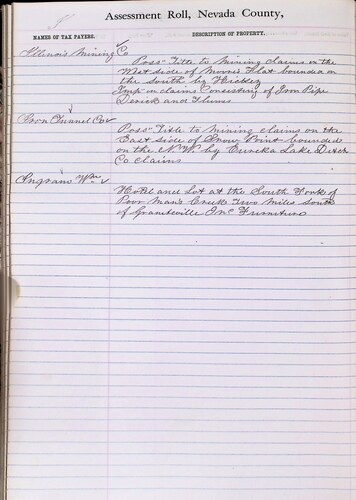 I
Assessment Roll, Nevada County,
NAMES OF TAX PAYERS.
DESCRIPTION OF PROPERTY.
Illinois Mining Co
Poss- Title to Mining claims on the
West side of Moores Flat bounded on
the South by Hickey
Imp- on claims Consisting of Iron Pipe
Derick and Flumes
Iron Tunnel Co
Poss- Title to mining claims on the
East side of Snow Point bounded
on the N.W. by Eureka Lake Ditch
Co claims
Ingram Wm
Hotel and Lot at the South Fork of
Poor Mans Creek Two Miles South
of Graniteville Inc Furniture